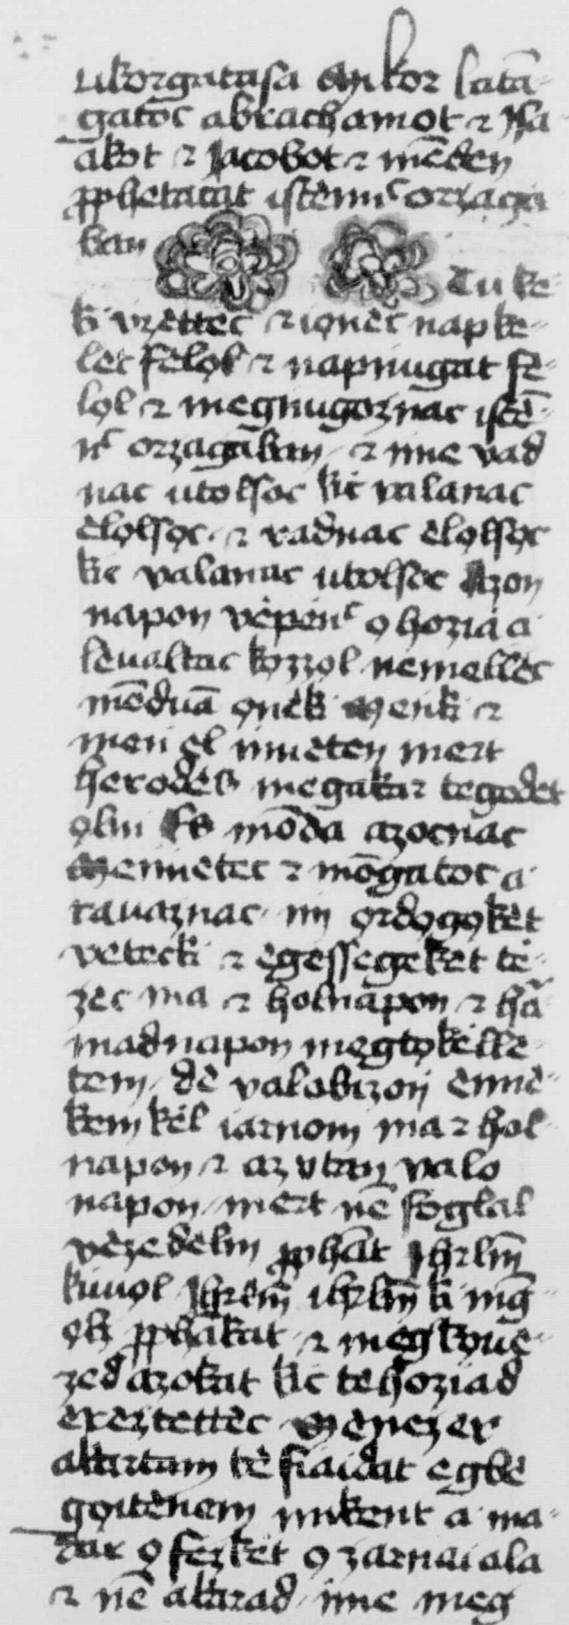 vikorgatasa Mikor latā-
gatoc abrachamot ⁊ ysa
akot ⁊ Jacobot ⁊ mēden
ꝓphetacat istēnnc orzaga
ban
ki vzèttec ⁊ ionèc napke-
let fèlọl ⁊ napnugat fè-
lọl ⁊ megnugoznac istē-
nc orzagaban ⁊ ime vad
nac utolsoc kic valanac
èlọlsọc ⁊ vadnac èlọlsọc
kic valanac utolsoc Azon
napon vèpènc ọ hozia a
leualtac kọzzọl nemellèc
mēduā ọnèki Menij ⁊
meń el innèten mert
herodès megakar tegedet
ọlni Es mōda azocnac
Mennètec ⁊ mōgatoc a
rauaznac ím ọrdọgọkèt
vètèc ki ⁊ egessegeket tè-
zec ma ⁊ holnapon ⁊ ha
madnapon megtọkèllè-
tem dè valobizon ennè-
kem kèl iarnom ma ⁊ hol-
napon ⁊ az vtan valo
napon mert nē foglal
vèzedèlm ꝓphāt Ihrlm̄
kiuọl Ihrlm̄ ihrlm̄ ki mḡ
ọlị ꝓphākat ⁊ megkọuè-
zed azokat kic tèhoziad
erèztettèc Menezer
akartam tè fiaidat ègbè
goitènem mikent a ma-
dar ọ fezkèt ọ zarnai ala
⁊ nē akarad ime meg